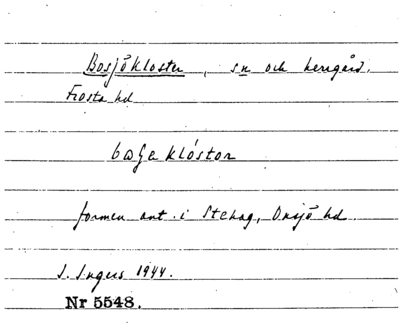 Bosjökloster, sn och herrgård.
Frosta hd
boʃe klóstor
formen ant. i Stehag, Onsjö hd.
I. Ingers 1944.
Nr 5548.